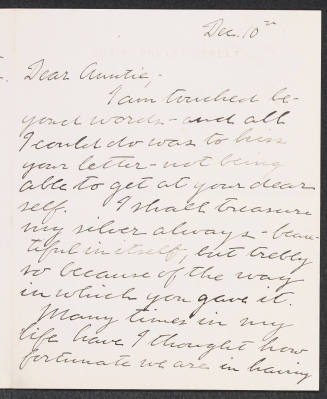 Dec. 10th
Dear Auntie,-
I am touched be-
yond words - and all
I could do was to kiss
your letter - not being
able to get at your dear
self. I shall treasure
my silver always - beau-
tiful in itself, but trebly
so because of the way
in which you gave it.
Many times in my
life have I thought how
fortunate we are in having